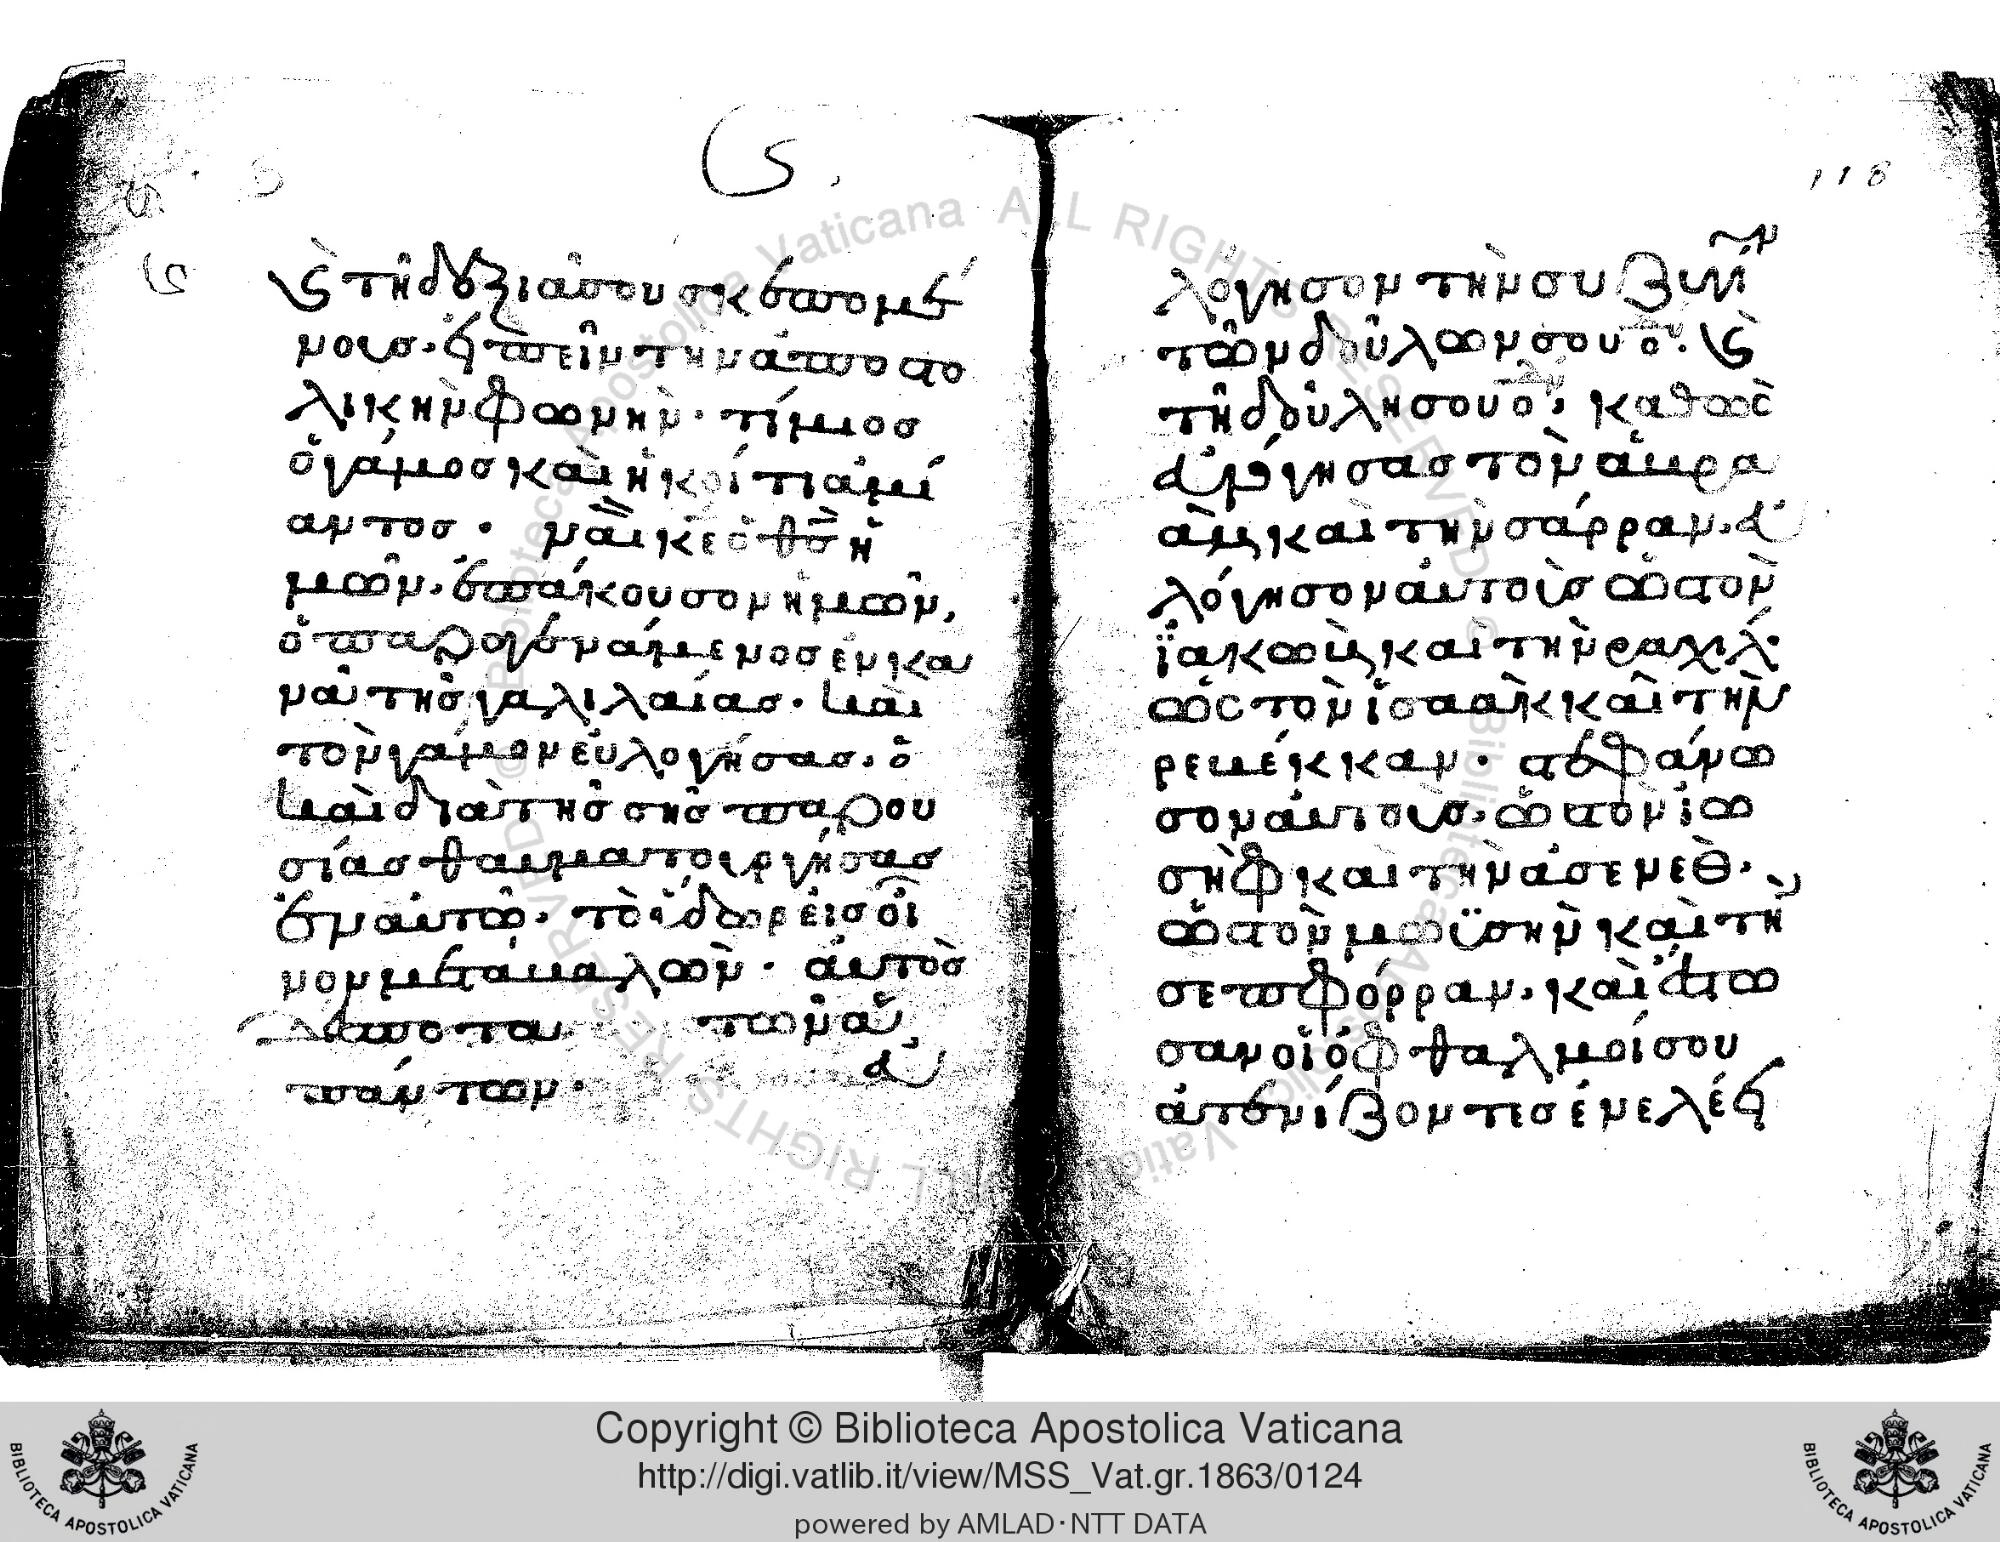 118
κ(αὶ) τῆ δεξιᾶ σου σκεπομέ
νοις. ἐπειπεῖν τὴν ἀποστο
λικὴν φωνὴν· τίμιος
ὁ γάμος καὶ ἡ κοίτι ἀμί
αντος· ναὶ κ̅ε̅ ὁ θ̅ς̅ ἡ
μῶν, ἐπάκουσον ἡμῶν,
ὁ παραγενάμενος ἐν κα
νᾶ τῆς γαλιλαίας· καὶ
τὸν γάμον εὐλογήσας. ὁ
καὶ διὰ τῆς σῆς παρου
σίας θαυματουργήσας
ἐν αὐτῶ. τὸ ὕδωρ εἰς οἶ
νον μεταβαλών· αὐτὸς
πάντων·
λόγησον τὴν συζυγί
τῶν δούλων σου ὁ δ. κ(αὶ)
τῆ δούλη σου ὁ δ, καθὼς
εὐλόγησας τὸν ἁβρα
ὰμ καὶ τὴν σάρραν. εὐ
λόγησον αὐτοὺς ὡς τὸν
ϊακὼβ καὶ τὴν ραχιλ·
ὡς τὸν ἰσαὰκ καὶ τὴν
ρεβέκκαν· στεφάνω
σον αὐτούς. ὡς τὸν ἰω
σὴφ καὶ τὴν ἀσενέθ·
ὡς τὸν μωϋσὴν καὶ τὴ
σεπφόρραν. καὶ ἔστω
σαν οἱ ὀφθαλμοί σου
ἀτενίζοντες ἐν ἐλέει
Copyright © Biblioteca Apostolica Vaticana
http://digi.vatlib.it/view/MSS_Vat.gr.1863/0124
powered by AMLAD·NTT DATA
BIBLIOTECA APOSTOLICA VATICANA
BIBLIOTECA APOSTOLICA VATICANA